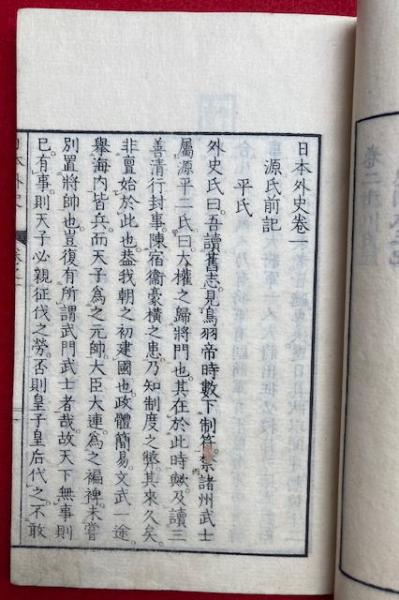 日本外史卷一
源氏前記
平氏
外史氏曰。吾讀舊志。見鳥羽帝時。數下制符。禁諸州武士
屬源平二氏。曰。大權之歸將門也。其在於此時歟。及讀三
善清行封事。陳宿衞豪橫之患。乃知制度之弊。其來久矣。
非豈始於此也。蓋我朝之初建國也。政體簡易。文武一途。
舉海内皆兵。而天子爲之元帥。大臣大連爲之褊裨。未嘗
別置將帥也。豈復有所謂武門武士者哉。故天下無事則
已。有事則天子必親征伐之勞。否則皇子皇后代之。不敢
日本外史
卷之一